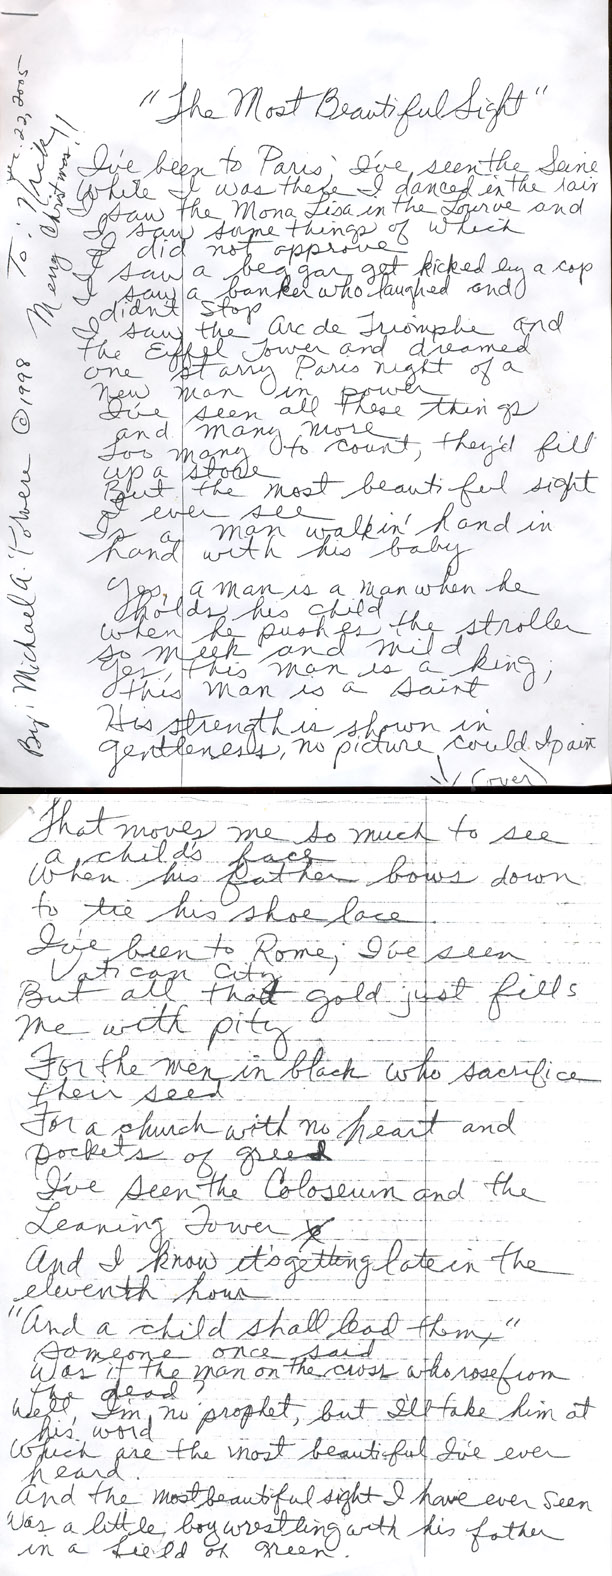 "The Most Beautiful Sight"
Dec. 22, 2005
To: Nick,
Merry Christmas!!
By: Michael A. Tolvere ©1998
I've been to Paris; I've seen the Seine
While I was there I danced in the rain
I saw the Mona Lisa in the Lourve and
I saw some things of which
I did not approve
I saw a beggar get kicked by a cop
I saw a banker who laughed and
didn't stop
I saw the Arc de Triomphe and
the Eiffel Tower and dreamed
one starry Paris night of a
new man in power
I've seen all these things
and many more
Too many to count, they'd fill
up a store
But the most beautiful sight
I'd ever see
Is a man walkin' hand in
hand with his baby
Yes, a man is a man when he
holds his child
When he pushes the stroller
so meek and mild
Yes, this man is a king;
this man is a saint
His strength is shown in
gentleness, no picture could I paint
(over)
That moves me so much to see
a child's face
When his father bows down
to tie his shoe lace.
I've been to Rome; I've seen
Vatican City
But all that gold just fills
me with pity
For the men in black who sacrifice
their seed
For a church with no heart and
pockets of greed
I've seen the Coloseum and the
Leaning Tower
And I know it's getting late in the
eleventh hour
"And a child shall lead them,"
someone once said
Was it the man on the cross who rose from
the dead?
Well, I'm no prophet, but I'll take him at
his word
Which are the most beautiful I've ever
heard.
And the most beautiful sight I have ever seen
Was a little boy wrestling with his father
in a field of green.